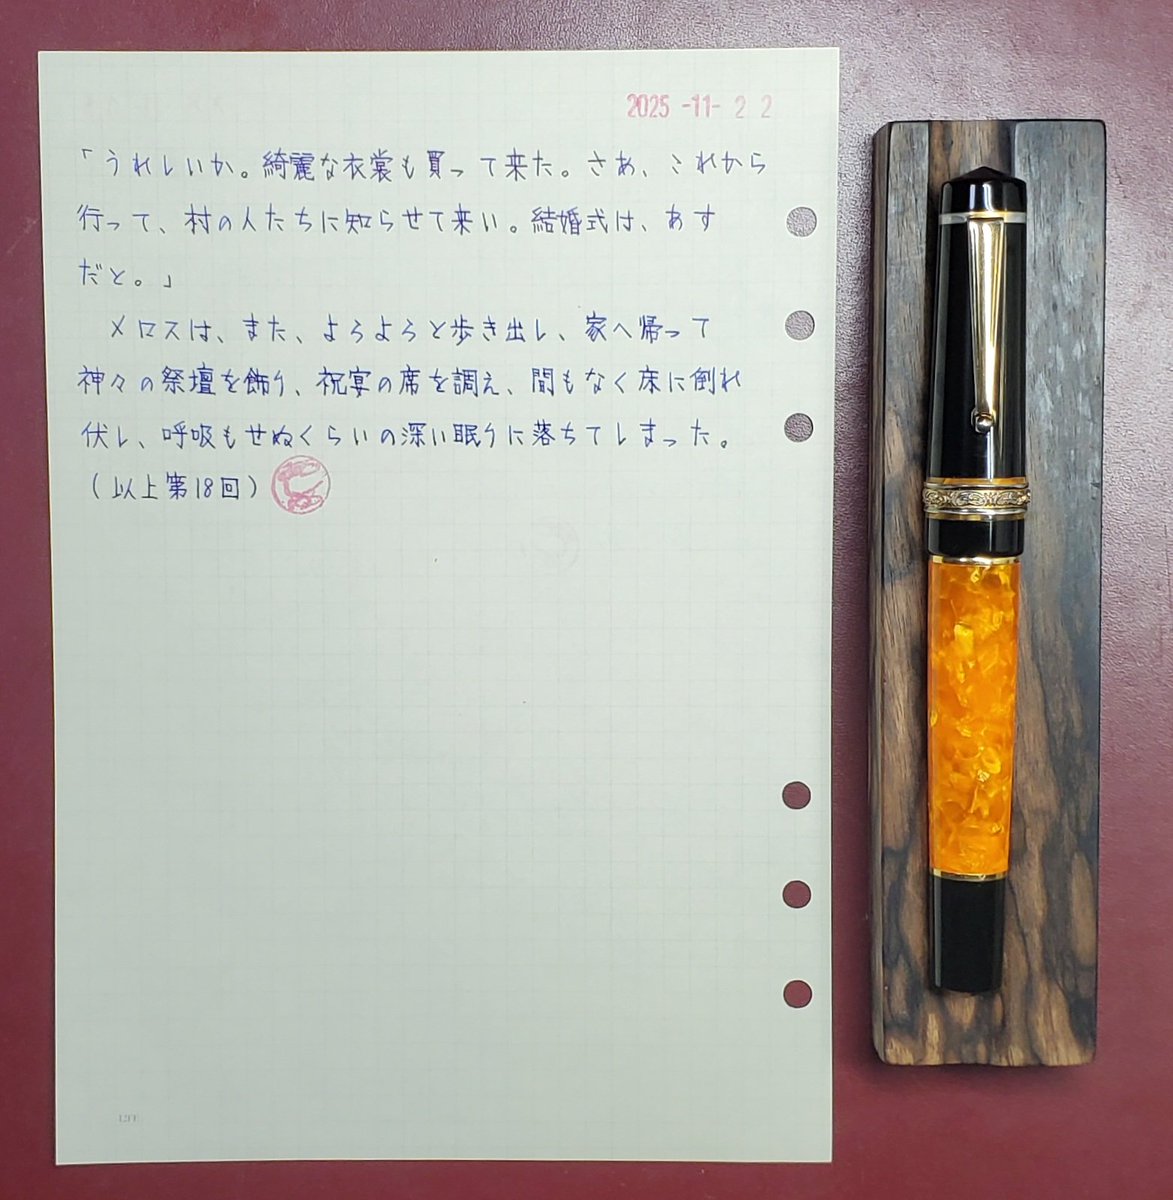 2025-11-22
「うれしいか。綺麗な衣裳も買って来た。さあ、これから
行って、村の人たちに知らせて来い。結婚式は、あす
だと。」
メロスは、また、よろよろと歩き出し、家へ帰って
神々の祭壇を飾り、祝宴の席を調え、間もなく床に倒れ
伏し、呼吸もせぬくらいの深い眠りに落ちてしまった。
(以上第18回)
LIFE